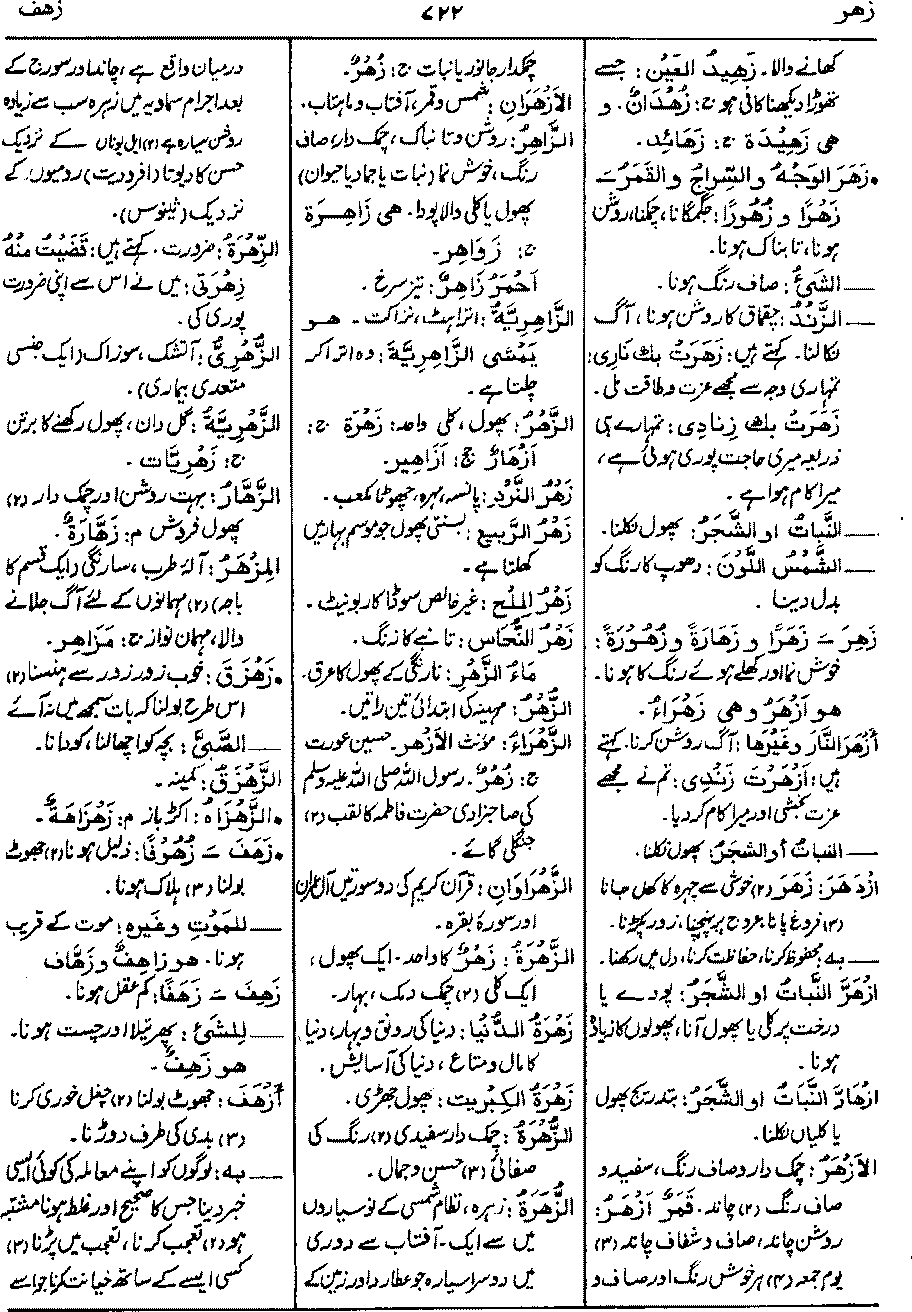 زهر
۷۲۲
زهف
کھانے والا۔ زَهِيدُ العَيْن: جسے
تھوڑا دیکھنا کافی ہو ج: زُهْدَانٌ. و
هى زَهِيْدَة ج: زَهَائِد.
•زَهَرَ الوَجْهُ والسِّراجُ والقَمَرُ ـَ
زَهْرًا وزُهُورًا: جگمگانا، چمکنا، روشن
ہونا، تابناک ہونا۔
ــــ الشئُ: صاف رنگ ہونا۔
ــــ الزَّنْدُ: چقماق کا روشن ہونا، آگ
نکالنا۔ کہتے ہیں: زَهَرَتْ بك نارِى:
تمہاری وجہ سے مجھے عزت و طاقت ملی۔
زَهَرَتْ بك زِنادِى: تمہارے ہی
ذریعہ میری حاجت پوری ہوئی ہے،
میرا کام ہوا ہے۔
ــــ النَّباتُ او الشَّجَرُ: پھول نکلنا۔
ــــ الشَّمْسُ اللَّوْنَ: دھوپ کا رنگ کو
بدل دینا۔
زَهِرَ ـَ زَهَرًا و زَهَارَةً و زُهُورَةً:
خوش نما اور کھلے ہوئے رنگ کا ہونا۔
هو أَزْهَرُ وهى زَهْراءُ.
أَزْهَرَ النَّارَ وغَيْرَها: آگ روشن کرنا۔ کہتے
ہیں: أَزْهَرْتَ زَنْدِى: تم نے مجھے
عزت بخشی اور میرا کام کر دیا۔
ــــ النباتُ أو الشَّجَرُ: پھول نکلنا۔
ازْدَهَرَ: زَهَرَ (۲) خوشی سے چہرہ کا کھل جانا
(۳) فروغ پانا، عروج پر پہنچنا، زور پکڑنا۔
ــــ بِه: محفوظ کرنا، حفاظت کرنا، دل میں رکھنا۔
ازْهَرَّ النَّباتُ او الشَّجَرُ: پودے یا
درخت پر کلی یا پھول آنا، پھولوں کا زیادہ
ہونا۔
ازْهَارَّ النَّباتُ او الشَّجَرُ: بتدریج پھول
یا کلیاں نکلنا۔
الأَزْهَرُ: چمک دار و صاف رنگ، سفید و
صاف رنگ (۲) چاند۔ قَمَرٌ أَزْهَرُ:
روشن چاند، صاف و شفاف چاند (۳)
یوم جمعہ (۴) ہر خوش رنگ اور صاف و
چمکدار جانور یا نبات ج: زُهْرٌ.
الأَزْهَرَانِ: شمس و قمر، آفتاب و ماہتاب۔
الزَّاهِرُ: روشن و تابناک، چمک دار، صاف
رنگ، خوش نما (نبات یا جماد یا حیوان)
پھول یا کلی والا پودا۔ هى زَاهِرَة
ج: زَوَاهِر.
أَحْمَرُ زَاهِرٌ: تیز سرخ۔
الزَّاهِرِيَّةُ: اتراہٹ، نزاکت۔ هو
يَمْشى الزَّاهِرِيَّةَ: وہ اترا کر
چلتا ہے۔
الزَّهْرُ: پھول، کلی واحد: زَهْرَة ج:
أَزْهَارٌ جج: أَزَاهِير.
زَهْرُ النَّرْدِ: پانسہ، مہرہ، چھوٹا مکعب۔
زَهْرُ الرَّبيعِ: بسنتی پھول جو موسم بہار میں
کھلتا ہے۔
زَهْرُ المِلْحِ: غیر خالص سوڈا کاربونیٹ۔
زَهْرُ النُّحَاس: تانبے کا زنگ۔
مَاءُ الزَّهْرِ: نارنگی کے پھول کا عرق۔
الزُّهَرُ: مہینہ کی ابتدائی تین راتیں۔
الزَّهْرَاءُ: مؤنث الأَزْهَر۔ حسین عورت
ج: زُهْرٌ. رسول اللہ صلی اللہ علیہ وسلم
کی صاحبزادی حضرت فاطمہ کا لقب (۲)
جنگلی گائے۔
الزَّهْرَاوَانِ: قرآن کریم کی دو سورتیں آل عمران
اور سورۂ بقرہ۔
الزَّهْرَةُ: زَهْرٌ کا واحد۔ ایک پھول،
ایک کلی (۲) چمک دمک، بہار۔
زَهْرَةُ الدُّنْيا: دنیا کی رونق و بہار، دنیا
کا مال و متاع، دنیا کی آسایش۔
زَهْرَةُ الكِبْرِيت: پھول جھڑی۔
الزُّهْرَةُ: چمک دار سفیدی (۲) رنگ کی
صفائی (۳) حسن و جمال۔
الزُّهَرَةُ: زہرہ، نظام شمسی کے نو سیاروں
میں سے ایک۔ آفتاب سے دوری
میں دوسرا سیارہ جو عطارد اور زمین کے
درمیان واقع ہے، چاند اور سورج کے
بعد اجرام سماویہ میں زہرہ سب سے زیادہ
روشن سیارہ ہے (۲) اہل یونان کے نزدیک
حسن کا دیوتا (افرودیت) رومیوں کے
نزدیک (ثینوس)۔
الزِّهْرَةُ: ضرورت۔ کہتے ہیں: قَضَيْتُ مِنْهُ
زِهْرَتى: میں نے اس سے اپنی ضرورت
پوری کی۔
الزُّهْرِىُّ: آتشک، سوزاک (ایک جنسی
متعدی بیماری)۔
الزَّهْرِيَّةُ: گل دان، پھول رکھنے کا برتن
ج: زَهْرِيَّات.
الزَّهَّارُ: بہت روشن اور چمک دار (۲)
پھول فروش م: زَهَّارَةٌ.
المِزْهَرُ: آلۂ طرب، سارنگی (ایک قسم کا
باجہ) (۲) مہمانوں کے لئے آگ جلانے
والا، مہمان نواز ج: مَزَاهِر.
•زَهْزَقَ: خوب زور زور سے ہنسنا (۲)
اس طرح بولنا کہ بات سمجھ میں نہ آئے
ــــ الصَّبِىَّ: بچہ کو اچھالنا، کودانا۔
الزَّهْزَقُ: کمینہ۔
•الزَّهْزَاهُ: اکڑ باز م: زَهْزَاهَةٌ.
•زَهَفَ ـَ زُهُوفًا: ذلیل ہونا (۲) جھوٹ
بولنا (۳) ہلاک ہونا۔
ــــ للمَوْتِ وغيره: موت کے قریب
ہونا۔ هو زاهِفٌ و زَهَّاف
زَهِفَ ـَ زَهَفًا: کم عقل ہونا۔
ــــ للشئ: پھرتیلا اور چست ہونا۔
هو زَهِفٌ.
أَزْهَفَ: جھوٹ بولنا (۲) چغل خوری کرنا
(۳) بدی کی طرف دوڑنا۔
ــــ بِه: لوگوں کو اپنے معاملہ کی کوئی ایسی
خبر دینا جس کا صحیح اور غلط ہونا مشتبہ
ہو (۲) تعجب کرنا، تعجب میں پڑنا (۳)
کسی ایسے کے ساتھ خیانت کرنا جو اسے